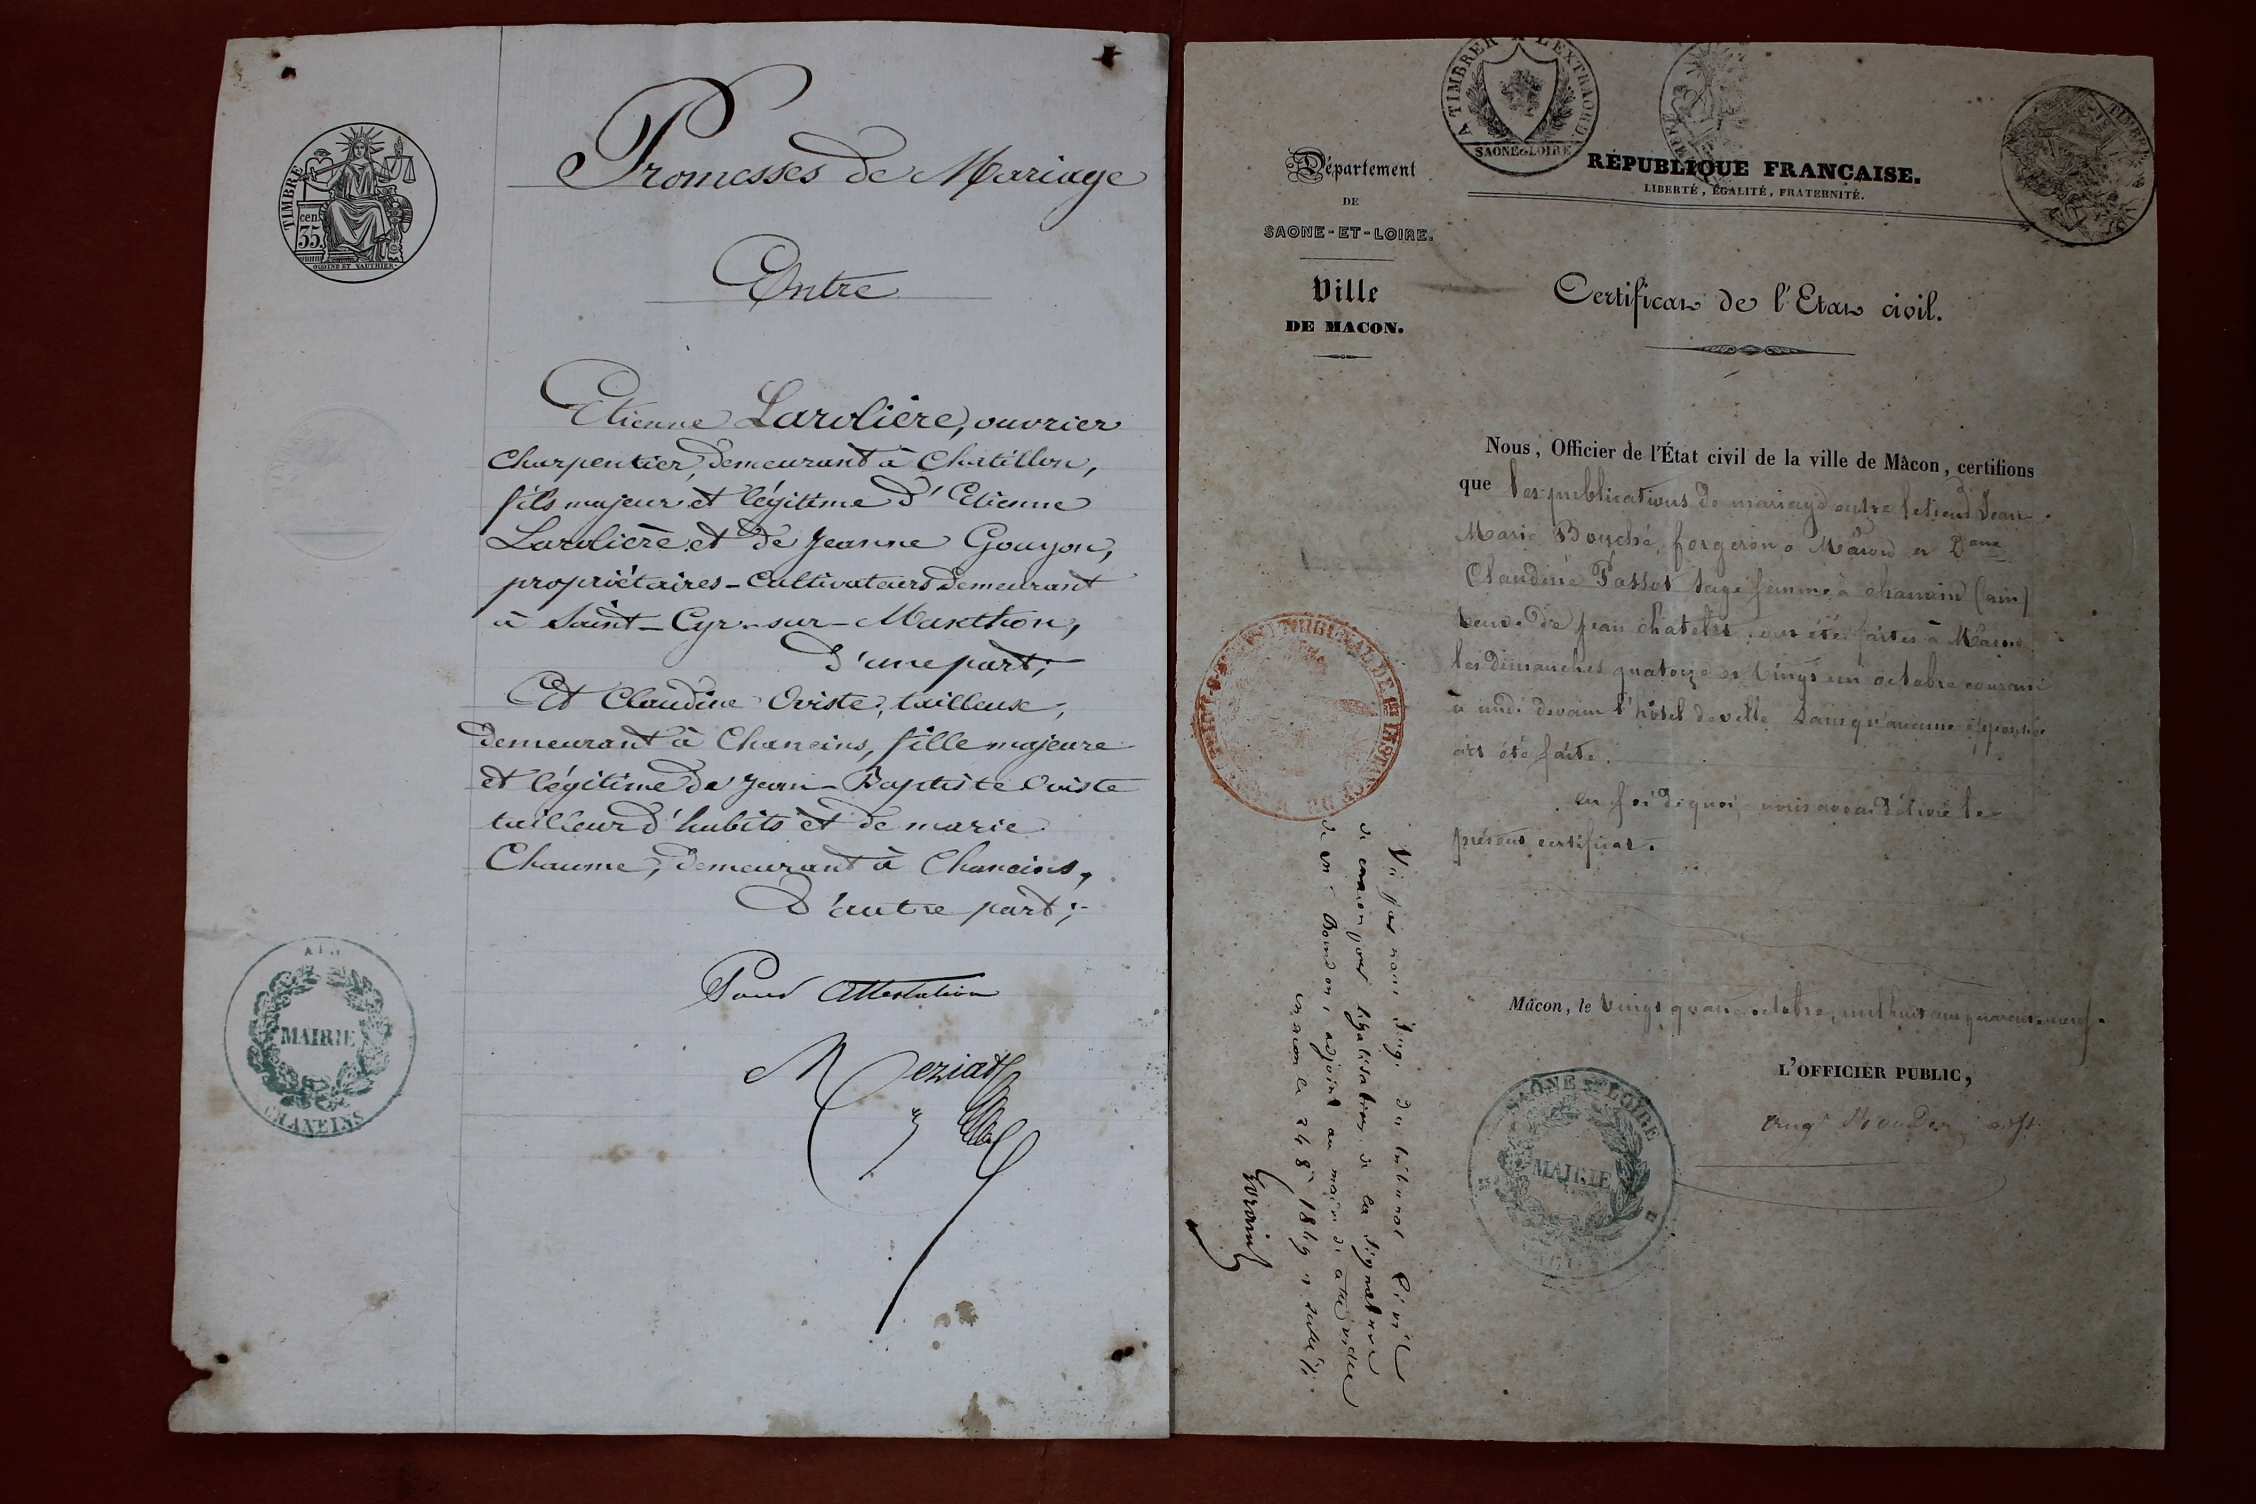 TIMBRE
cen. 35
OUDINÉ ET VAUTHIER
Promesses de Mariage
Entre
Etienne Larolière, ouvrier
charpentier, demeurant à Chatillon,
fils majeur et légitime d'Etienne
Larolière et de Jeanne Gouyon,
propriétaires-cultivateurs demeurant
à Saint-Cyr-sur-Menthon,
d'une part;
Et Claudine Oviste, tailleuse,
demeurant à Chaneins, fille majeure
et légitime de Jean-Baptiste Oviste
tailleur d'habits et de marie
Chaume, demeurant à Chaneins,
d'autre part;
Pour attestation
Meziat
AIN
MAIRIE
CHANEINS
A TIMBRER A L'EXTRAORD.
SAONE & LOIRE
TIMBRE
Département
DE
SAONE-ET-LOIRE.
Ville
DE MACON.
RÉPUBLIQUE FRANCAISE.
LIBERTÉ, ÉGALITÉ, FRATERNITÉ.
Certificat de l'Etat civil.
Nous, Officier de l'État civil de la ville de Mâcon, certifions
que les publications de mariage entre le sieur Jean
Marie Bouché, forgeron à Mâcon et Dame
Claudine Passot sage femme à chanein (ain)
veuve de jean chatelet, ont été faites à Mâcon
les dimanches quatorze et vingt un octobre courant
à midi devant l'hôtel de ville sans qu'aucune opposition
ait été faite.
en foi de quoi, nous avons délivré le
présent certificat.
Mâcon, le vingt quatre octobre, mil huit cent quarante neuf.
L'OFFICIER PUBLIC,
SAÔNE ET LOIRE
MAIRIE
TRIBUNAL DE 1re INSTANCE
Vu par nous juge du tribunal Civil
de macon pour légalisation de la signature
de Mr adjoint au maire de cette ville
macon le 24 8bre 1849